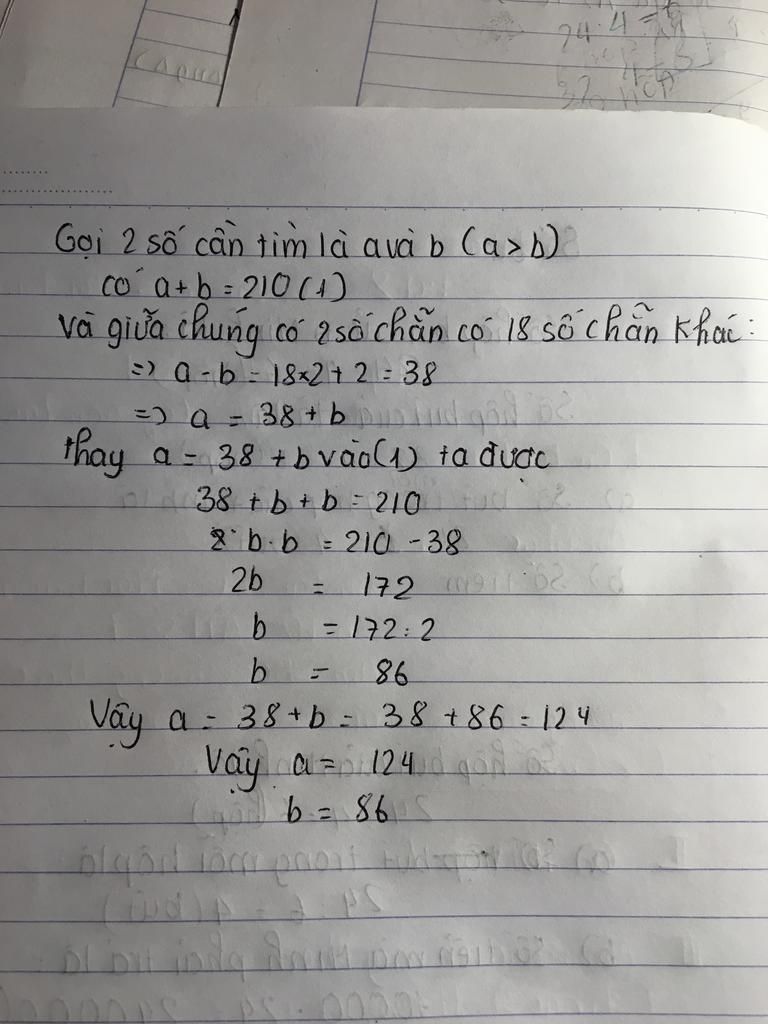 capua
24.4=
32
Gọi 2 số cần tìm là a và b (a>b)
có a+b=210(1)
và giữa chúng có 2 số chẵn có 18 số chẵn khác:
=> a-b=18x2+2=38
=> a = 38+b
thay a = 38 +b vào(1) ta được
38 +b+b=210
b.b = 210-38
2b = 172
b =172:2
b = 86
Vậy a = 38+b = 38 +86=124
Vậy a= 124
b = 86